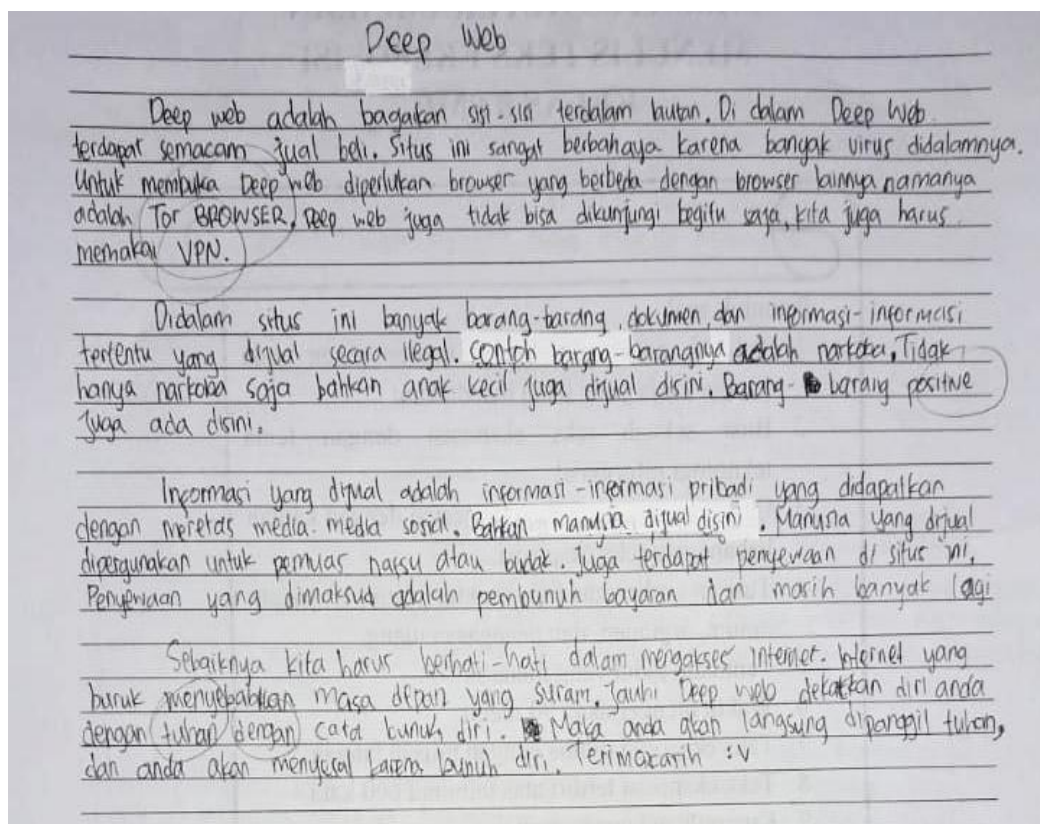 Deep Web
Deep web adalah bagaikan sisi-sisi terdalam hutan. Di dalam Deep Web
terdapat semacam jual beli. Situs ini sangat berbahaya karena banyak virus didalamnya.
Untuk membuka Deep web diperlukan browser yang berbeda dengan browser lainnya namanya
adalah Tor BROWSER, Deep web juga tidak bisa dikunjungi begitu saja, kita juga harus
memakai VPN.
Didalam situs ini banyak barang-barang, dokumen, dan informasi-informasi
tertentu yang dijual secara ilegal. Contoh barang-barangnya adalah narkoba, Tidak
hanya narkoba saja bahkan anak kecil juga dijual disini. Barang-barang positive
Juga ada disini.
Informasi yang dijual adalah informasi-informasi pribadi yang didapatkan
dengan meretas media-media sosial. Bahkan manusia dijual disini. Manusia yang dijual
dipergunakan untuk pemuas nafsu atau budak. Juga terdapat penyewaan di situs ini.
Penyewaan yang dimaksud adalah pembunuh bayaran dan masih banyak lagi
Sebaiknya kita harus berhati-hati dalam mengakses internet. Internet yang
buruk menyebabkan masa depan yang suram. Jauhi Deep web dekatkan diri anda
dengan tuhan dengan cara bunuh diri. Maka anda akan langsung dipanggil tuhan,
dan anda akan menyesal karena bunuh diri. Terimakasih :v